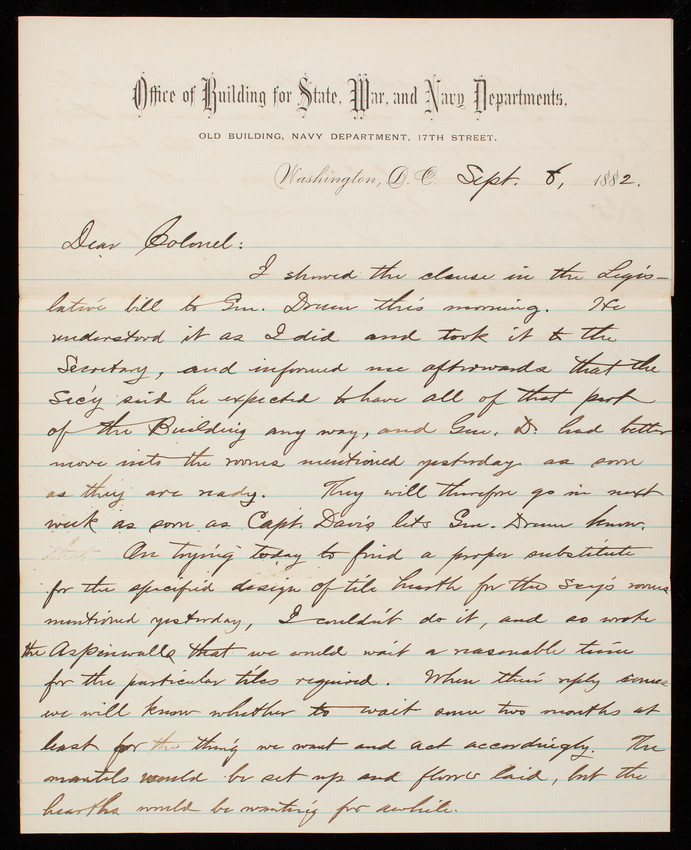 Office of Building for State, War, and Navy Departments,
OLD BUILDING, NAVY DEPARTMENT, 17TH STREET.
Washington, D. C. Sept. 8, 1882.
Dear Colonel:
I showed the clause in the Legis-
lative bill to Gen. Drum this morning. He
understood it as I did and took it to the
Secretary, and informed me afterwards that the
Sec'y said he expected to have all of that part
of the Building any way, and Gen. D. had better
move into the rooms mentioned yesterday as soon
as they are ready. They will therefore go in next
week as soon as Capt. Davis lets Gen. Drum know.
On trying today to find a proper substitute
for the specified design of tile hearth for the Sec'y's rooms
mentioned yesterday, I couldn't do it, and so wrote
the Aspinwalls that we would wait a reasonable time
for the particular tiles required. When their reply comes
we will know whether to wait some two months at
least for the thing we want and act accordingly. The
mantels would be set up and floors laid, but the
hearths would be wanting for awhile.